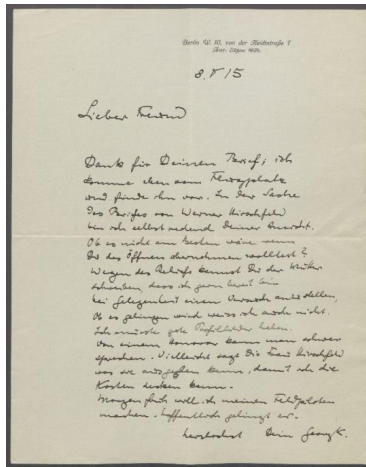 Berlin W. 10, von der Heydtstraße 7
8. V 15
Lieber Freund
Dank für Deinen Brief; ich
komme eben vom Flugplatz
und finde ihn vor. In der Sache
des Reliefs von Werner Hirschfeld
bin ich selbstredend Deiner Ansicht.
Ob es nicht am besten wäre wenn
Du das Öffnen übernehmen wolltest?
Wegen des Reliefs kannst Du der Mutter
schreiben, dass ich gern bereit bin
bei Gelegenheit einen Versuch anzustellen,
Ob es gelingen wird weiss ich auch nicht.
Ich müsste gute Profilbilder haben.
Von einem Honorar kann man schwer
sprechen. Vielleicht sagt Dir Frau Hirschfeld
was sie ausgeben kann, damit ich die
Kosten decken kann.
Morgen früh will ich meinen Feldpiloten
machen. Hoffentlich gelingt es.
herzlichst Dein Georg K.